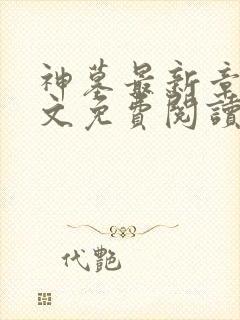 神墓最新章
文免費閱讀
代艷